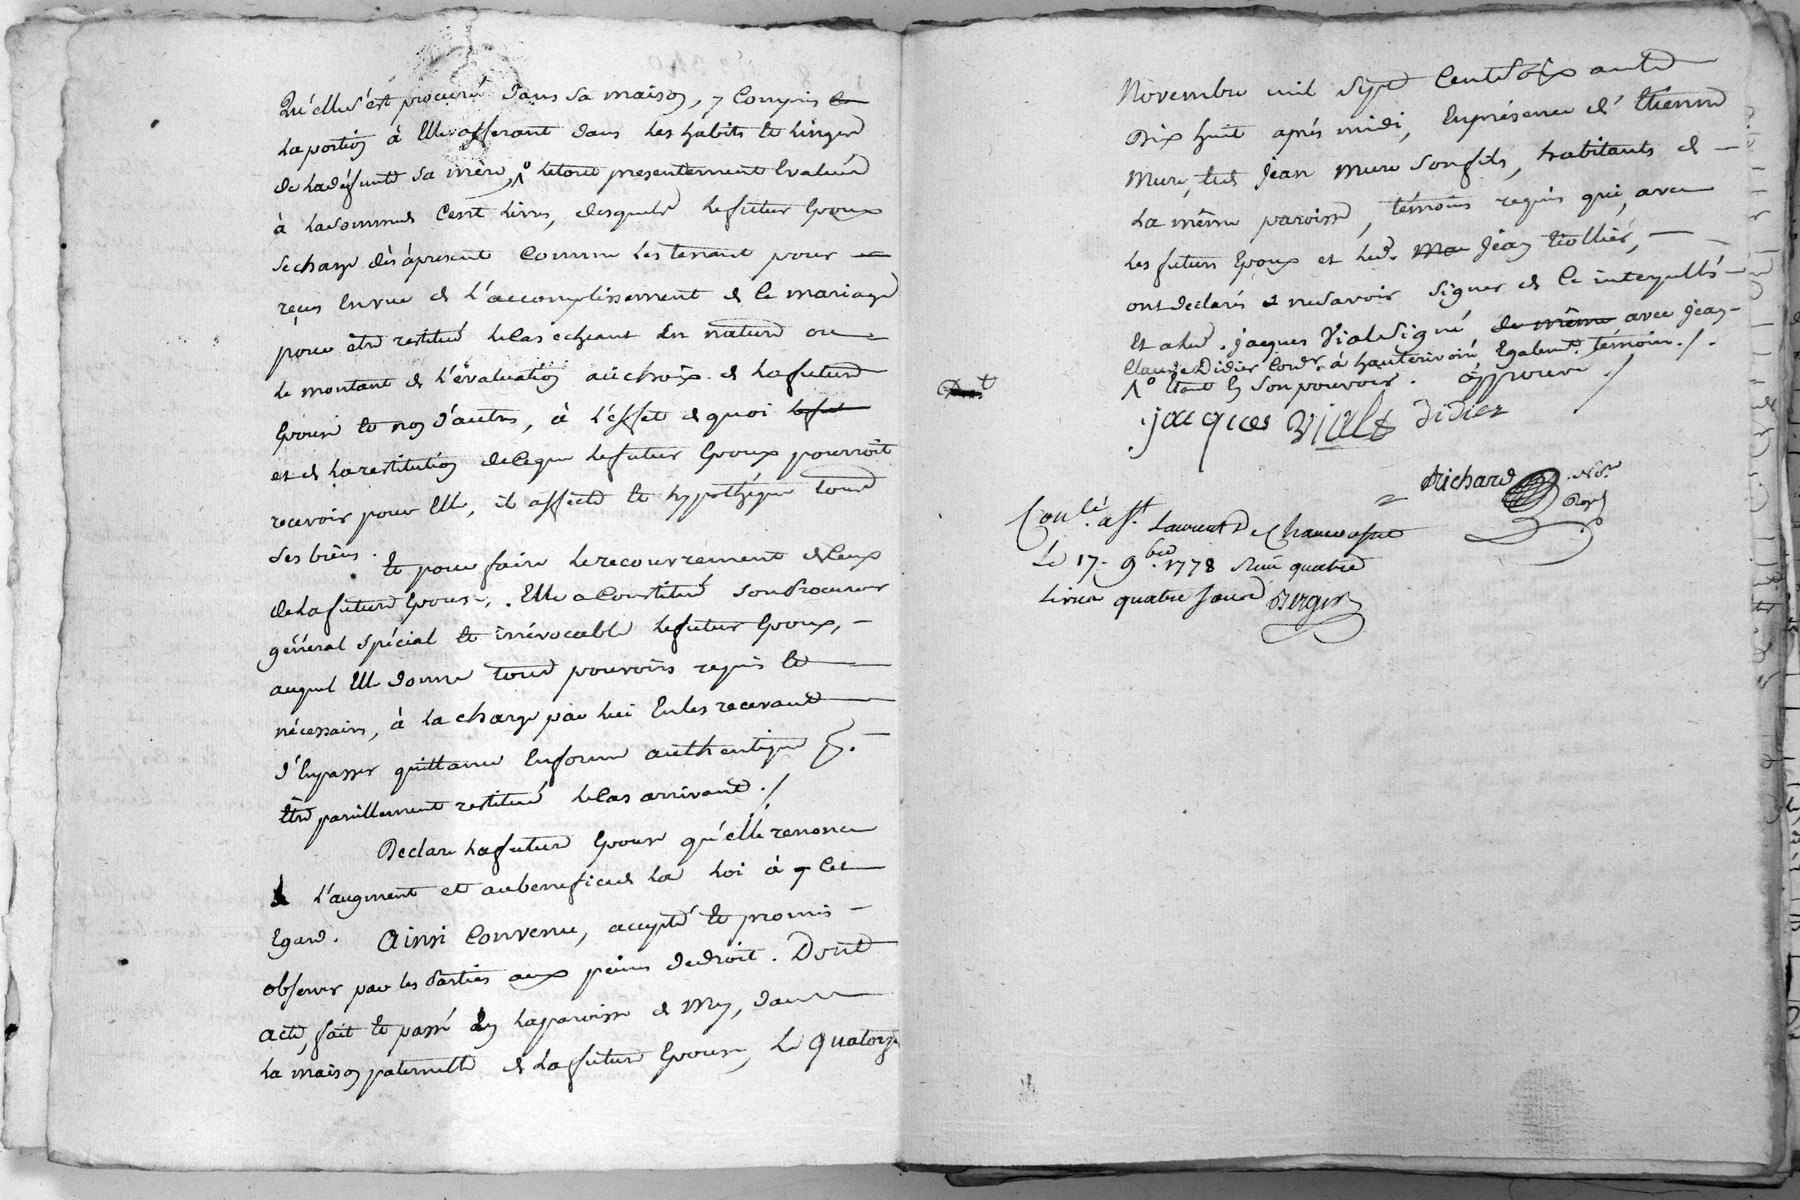 Qu'elle s'est procuré dans sa maison, y Compris la
la portion à Elle afferant dans les habits et Linges
de la défunte sa mère, ^o le tout presentement Evalué
à la somme de Cent Livres, desquels le futur Epoux
se charge dès àpresent Comme les tenant pour
reçus En vue de l'accomplissement de Ce mariage
pour être restitué le Cas echeant En nature ou
le montant de l'évaluation au choix de la future
Epouse et non d'autres, à l'effet de quoi le fut
et de la restitution de Ce que le futur Epoux pourroit
recevoir pour Elle, il affecte et hypothéque tous
ses biens. Et pour faire le recouvrement de Ceux
de la future Epouse, Elle a Constitué son Procureur
général spécial et irrévocable le futur Epoux,
auquel Elle donne tous pouvoirs requis et
nécessaires, à la charge par lui En les recevant
d'En passer quittance En forme authentique &.
Etre pareillement restitué le Cas arrivant ./
Declare la future Epouse qu'elle renonce
à l'augment et au benefice de la Loi à y Cet
Egard. Ainsi Convenu, accepté et promis
observer par les Parties aux peines de droit. Dont
acte, fait et passé En la paroisse de Mey, dans
la maison paternelle de la future Epouse, le quatorze
Novembre mil sept Cent soixante
Dix huit après midi, En présence d'Etienne
Mure, et de Jean Mure son fils, habitants de
la même paroisse, témoins requis qui, avec
les futurs Epoux et led. Ma Jean Tiollier,
ont declarés ne savoir signer de Ce interpellés
Et a led. jacques Viale Signé de même avec Jean
Claude Didier Cordr. à hauterivoire Egalemt. témoin ./.
^o Etant En son pouvoir. approuvé ./
jacques Viale Didier
Richard Nore.
Royl
Conlé. à St. Laurent De Chamousset
Le 17. 9bre. 1778 Reçu quatre
Livres quatre Sous Berger